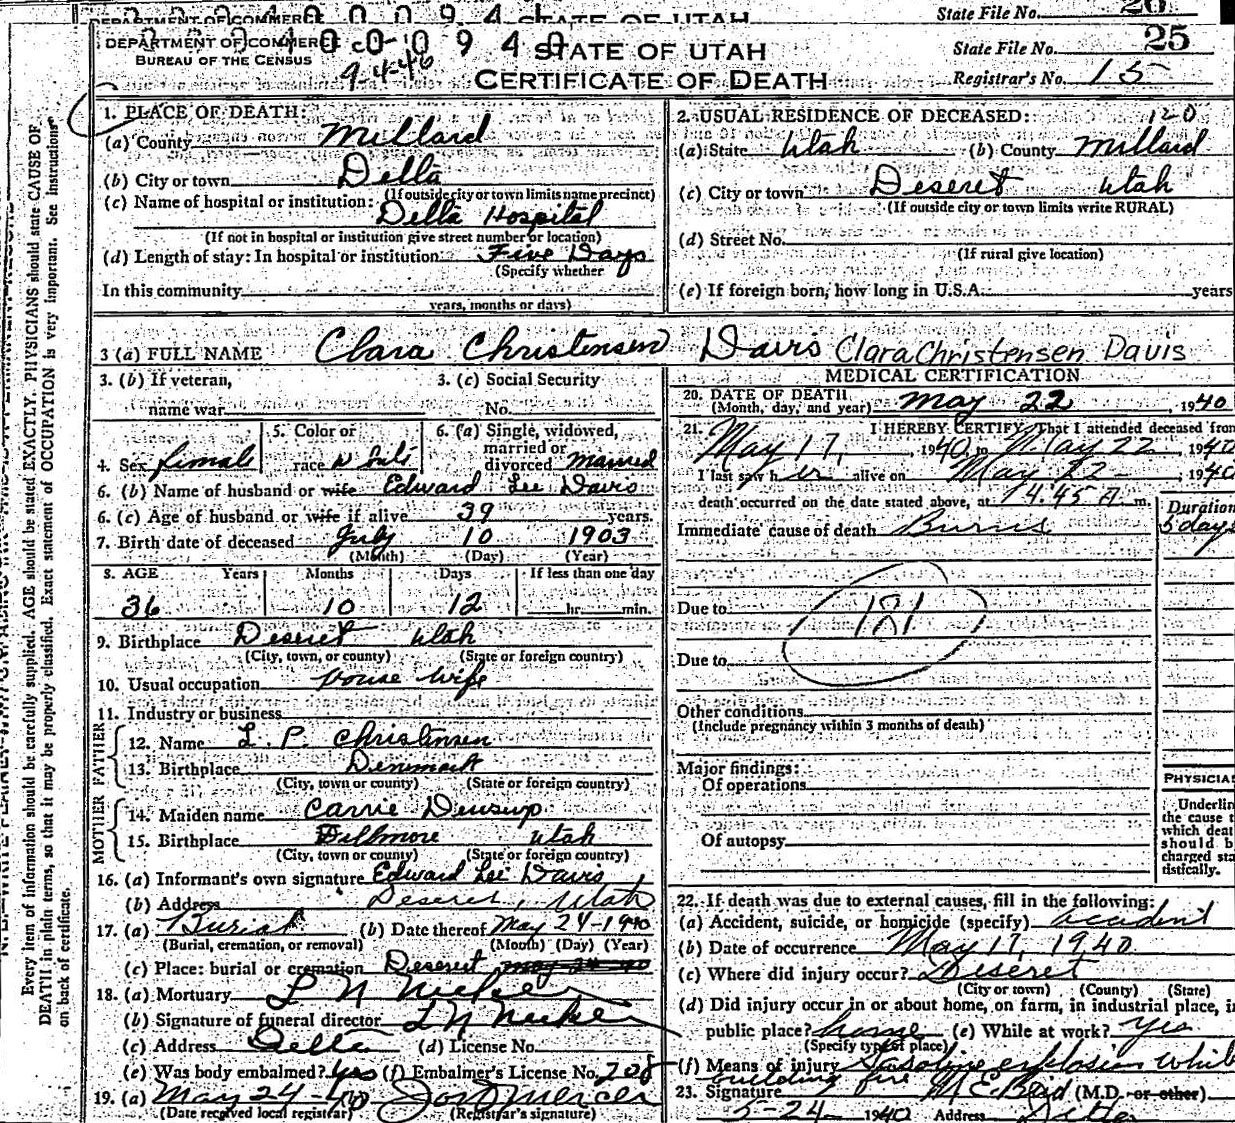 DEPARTMENT OF COMMERCE STATE OF UTAH State File No. 20
DEPARTMENT OF COMMERCE STATE OF UTAH State File No. 25
BUREAU OF THE CENSUS 9-4-46 CERTIFICATE OF DEATH Registrar's No. 15
1. PLACE OF DEATH:
(a) County Millard
(b) City or town Delta
(If outside city or town limits name precinct)
(c) Name of hospital or institution:
Delta Hospital
(If not in hospital or institution give street number or location)
(d) Length of stay: In hospital or institution Five Days
(Specify whether
In this community
years, months or days)
2. USUAL RESIDENCE OF DECEASED: 120
(a) State Utah (b) County Millard
(c) City or town Deseret Utah
(If outside city or town limits write RURAL)
(d) Street No.
(If rural give location)
(e) If foreign born, how long in U.S.A. years
3 (a) FULL NAME Clara Christensen Davis Clara Christensen Davis
3. (b) If veteran, 3. (c) Social Security
name war No.
4. Sex female 5. Color or race White 6. (a) Single, widowed, married or divorced married
6. (b) Name of husband or wife Edward Lee Davis
6. (c) Age of husband or wife if alive 39 years.
7. Birth date of deceased July 10 1903
(Month) (Day) (Year)
8. AGE Years Months Days If less than one day
36 10 12 hr. min.
9. Birthplace Deseret Utah
(City, town, or county) (State or foreign country)
10. Usual occupation House wife
11. Industry or business
FATHER
12. Name L. P. Christensen
13. Birthplace Denmark
(City, town or county) (State or foreign country)
MOTHER
14. Maiden name Carrie
15. Birthplace Fillmore Utah
(City, town or county) (State or foreign country)
16. (a) Informant's own signature Edward Lee Davis
(b) Address Deseret, Utah
17. (a) Burial (b) Date thereof May 24-1940
(Burial, cremation, or removal) (Month) (Day) (Year)
(c) Place: burial or cremation Deseret
18. (a) Mortuary L N
(b) Signature of funeral director L N
(c) Address Delta (d) License No.
(e) Was body embalmed? Yes (f) Embalmer's License No. 208
19. (a) May 24-40
(Date received local registrar) (Registrar's signature)
MEDICAL CERTIFICATION
20. DATE OF DEATH
(Month, day, and year) May 22, 1940
21. I HEREBY CERTIFY, That I attended deceased from
May 17, 1940, to May 22, 1940
I last saw h er alive on May 22, 1940
death occurred on the date stated above, at 4:45 A. m.
Immediate cause of death Burns
Duration
5 days
Due to 181
Due to
Other conditions
(Include pregnancy within 3 months of death)
Major findings:
Of operations
Of autopsy
PHYSICIA
Underlin
the cause t
which deat
should b
charged sta
tistically.
22. If death was due to external causes, fill in the following:
(a) Accident, suicide, or homicide (specify) accident
(b) Date of occurrence May 17, 1940
(c) Where did injury occur? Deseret
(City or town) (County) (State)
(d) Did injury occur in or about home, on farm, in industrial place, in
public place? home (e) While at work? yes
(Specify type of place)
(f) Means of injury Gasoline explosion while
building fire
23. Signature M. E. Bird (M.D. or other)
5-24-1940 Address Delta
Every item of information should be carefully supplied. AGE should be stated EXACTLY. PHYSICIANS should state CAUSE OF
DEATH in plain terms, so that it may be properly classified. Exact statement of OCCUPATION is very important. See instructions
on back of certificate.